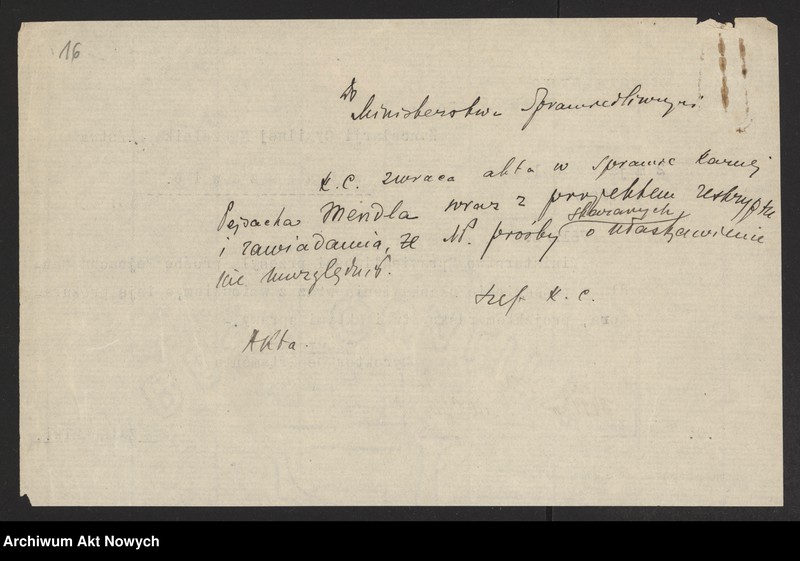 16
Do
Ministerstwa Sprawiedliwości
K.C. zwraca akta w sprawie karnej
Pejsacha Mendla wraz z projektem reskryptu
skazanych
i zawiadamia, że NP. prośby o ułaskawienie
nie uwzględnił.
Szef K.C.
Akta.
Archiwum Akt Nowych